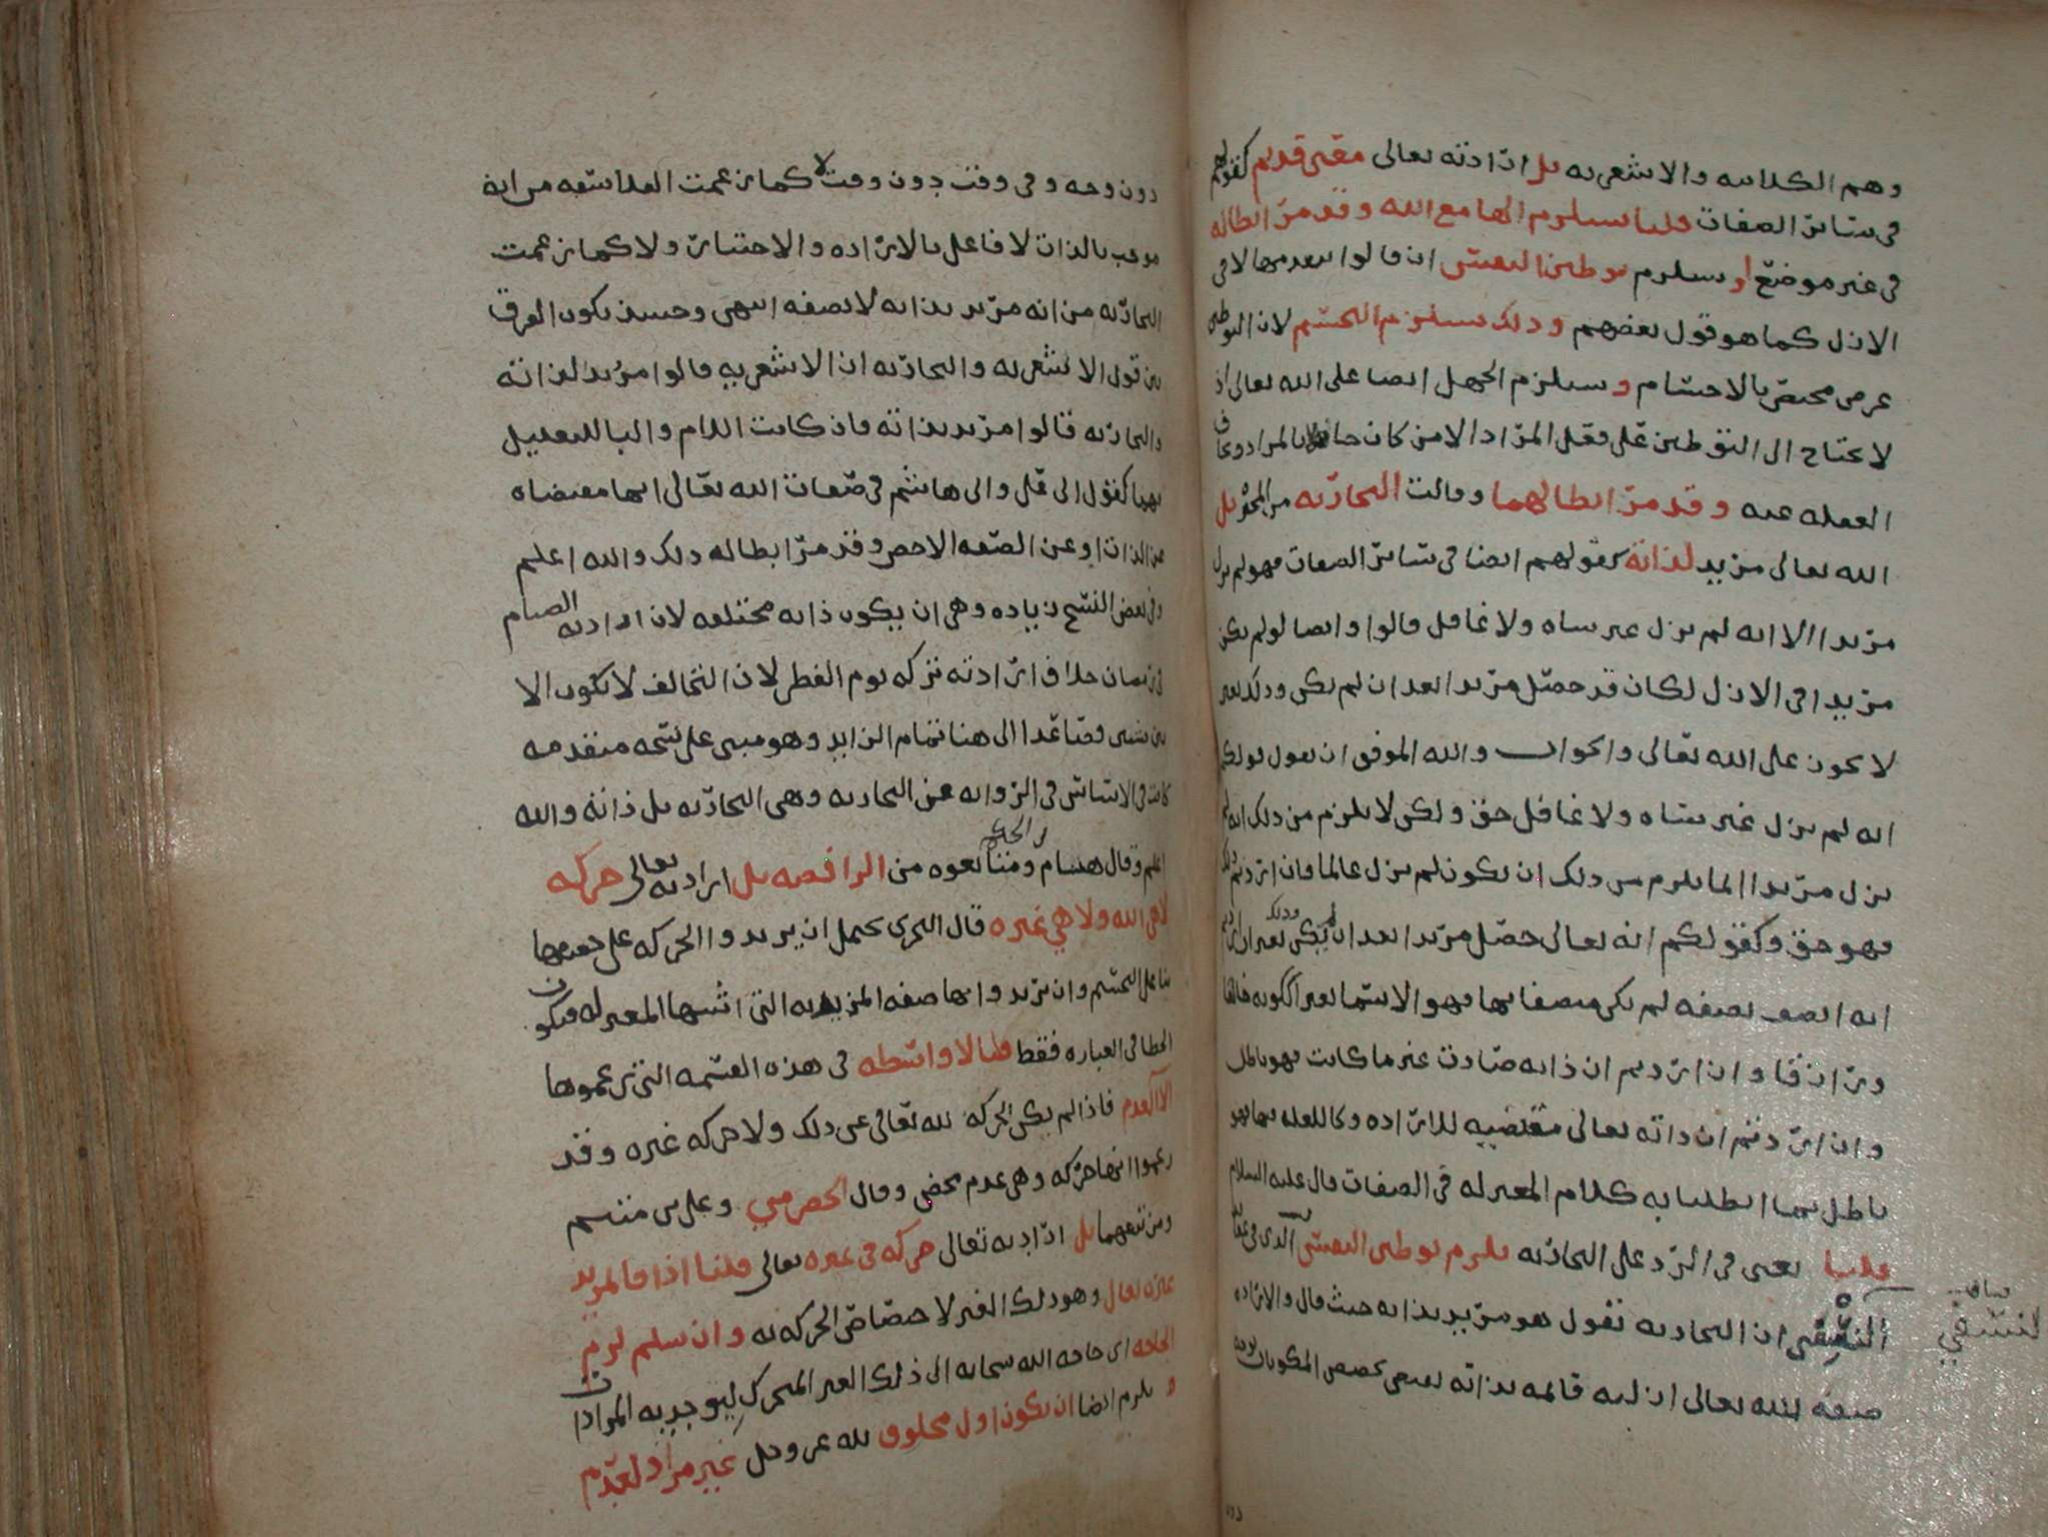 وهم الكلابيه والاشعريه بل ارادته تعالى معنى قديم كقولهم
في سائر الصفات قلنا يستلزم الها مع الله وقد مر ابطاله
في غير موضع او يستلزم توطين النفس ان قالوا بعدمها لا في
الازل كما هو قول بعضهم وذلك يستلزم التجسم لان التوطين
عرض مختص بالاجسام ويستلزم الجهل ايضا على الله تعالى اذ
لا يحتاج الى التوطين على فعل المراد الا من كان جاهلا بالمراد وعاف
الغفله عنه وقد مر ابطالهما وقالت النجاريه من المجبره بل
الله تعالى مريد لذاته كقولهم ايضا في سائر الصفات فهو لم يزل
مريدا الا انه لم يزل غير ساه ولا غافل قالوا وايضا لو لم يكن
مريدا في الازل لكان قد حصل مريدا بعد ان لم يكن وذلك تغير
لا يجوز على الله تعالى والجواب والله الموفق ان نقول قولكم
انه لم يزل غير ساه ولا غافل حق ولكن لا يلزم من ذلك انه لم
يزل مريدا انما يلزم من ذلك ان يكون لم يزل عالما فان اردتم ذلك
فهو حق وكقولكم انه تعالى حصل مريدا بعد ان لم يكن وذلك تغير ان اردتم
انه اتصف بصفه لم يكن متصفا بها فهو لا يسمى تغيرا ككونه خالقا
ورازقا وان اردتم ان ذاته صارت غير ما كانت فهو باطل
وان اردتم ان ذاته تعالى مقتضيه للاراده وكالعله فيها فهو
باطل بما ابطلنا به كلام المعتزله في الصفات قال عليه السلام
قلنا يعني في الرد على النجاريه يلزم توطين النفس الذي في
النسفي ان النجاريه تقول هو مريد بذاته حيث قال والاراده
صفه لله تعالى ازليه قائمه بذاته تقتضي تخصيص المكونات بوجه
النسفي
دون وجه وفي وقت دون وقت لا كما زعمت الفلاسفه من انه
موجب بالذات لا فاعل بالاراده والاختيار ولا كما زعمت
النجاريه من انه مريد بذاته لا بصفه انتهى وحينئذ يكون الفرق
بين قول الاشعريه والنجاريه ان الاشعريه قالوا مريد لذاته
والنجاريه قالوا مريد بذاته فان كانت اللام والبا للتعليل
فهما كقول ابي علي وابي هاشم في صفات الله تعالى انها مقتضاه
عن الذات او عن الصفه الاخص وقد مر ابطاله ذلك والله اعلم
وفي بعض النسخ زياده وهي ان يكون ذاته مختلفه لان ارادته الصيام
في رمضان خلاف ارادته تركه يوم الفطر لان التخالف لا يكون الا
بين شيئين فصاعدا الى هنا تمام الزايد وهو مبني على نسخه متقدمه
كانت في الاساس في الروايه عن النجاريه وهي النجاريه بل ذاته والله
اعلم وقال هشام بن الحكم ومتابعوه من الرافضه بل ارادته تعالى حركه
لا هي الله ولا هي غيره قال النجري يحتمل ان يريدوا الحركه على حقيقتها
بنا على التجسيم وان يريدوا بها صفه المريديه التي اثبتها المعتزله فيكون
الخطا في العباره فقط قلنا لا واسطه في هذه القسمه التي زعموها
الا العدم فاذا لم يكن الحركه لله تعالى عن ذلك ولا حركه غيره وقد
زعموا انها حركه وهي عدم محض وقال الحضرمي وعلي بن ميثم
ومن تبعهما بل ارادته تعالى حركه في غيره تعالى قلنا اذا فالمريد
غيره تعالى وهو ذلك الغير لاختصاص الحركه به وان سلم لزم
الحاجه اي حاجه الله سبحانه الى ذلك الغير المتحرك ليوجد به المرادات
ويلزم ايضا ان يكون اول مخلوق لله عز وجل غير مراد لعدم